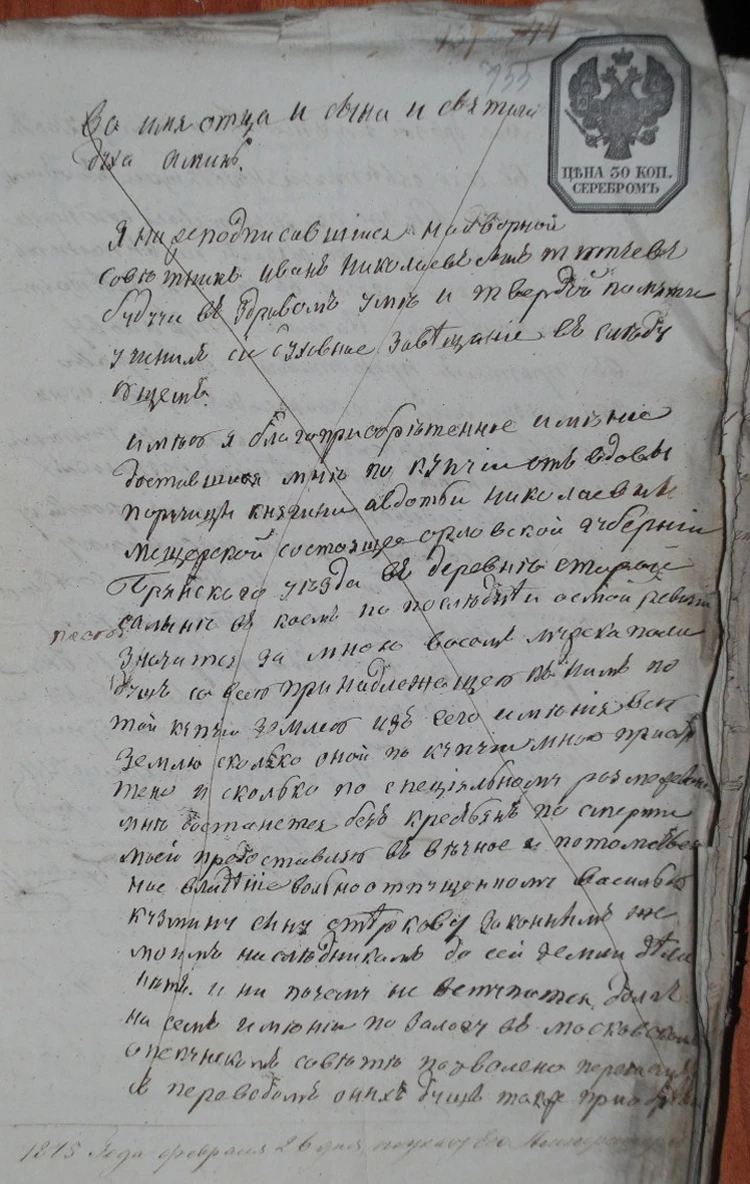 755
ЦѢНА 30 КОП.
СЕРЕБРОМЪ
Во имя отца и сына и святаго
духа аминь.
Я нижеподписавшійся надворной
советникъ иванъ николаевъ сынъ тютчевъ
будучи въ здравомъ умѣ и твердой памяти
учинилъ сіе духовное завѣщаніе въ слѣду
ющемъ.
имѣю я благопріобрѣтенное имѣніе
доставшися мнѣ по купчіи отъ вдовы
порутчицы княгини авдотьи николаевны
мещерской состоящее орловской губерніи
Брянскаго уѣзда въ деревнѣ старой
салыни въ коемъ по послѣдней осмой ревизіи
значится за мною восемь мужеска пола
душъ со всею принадлежащею къ нимъ по
той купчіи землею изъ сего имѣнія всю
землю сколько оной по купчіи мною пріобрѣ
тено и сколько по спеціяльному размежеванію
мнѣ достанется безъ крестьянъ по смерти
моей предоставляю въ вѣчное и потомствен
ное владѣніе вольноотпущенному василью
кузмину сыну законнымъ же
моимъ наслѣдникамъ до сей земли дѣла
нѣтъ. и ни почему не вступатся. долгъ
на семъ имѣніи по залогу въ московскомъ
опекунскомъ совѣтѣ позволено
съ переводомъ онихъ душъ
1875 Года февраля 26 дня, по указу Его Императорскаго